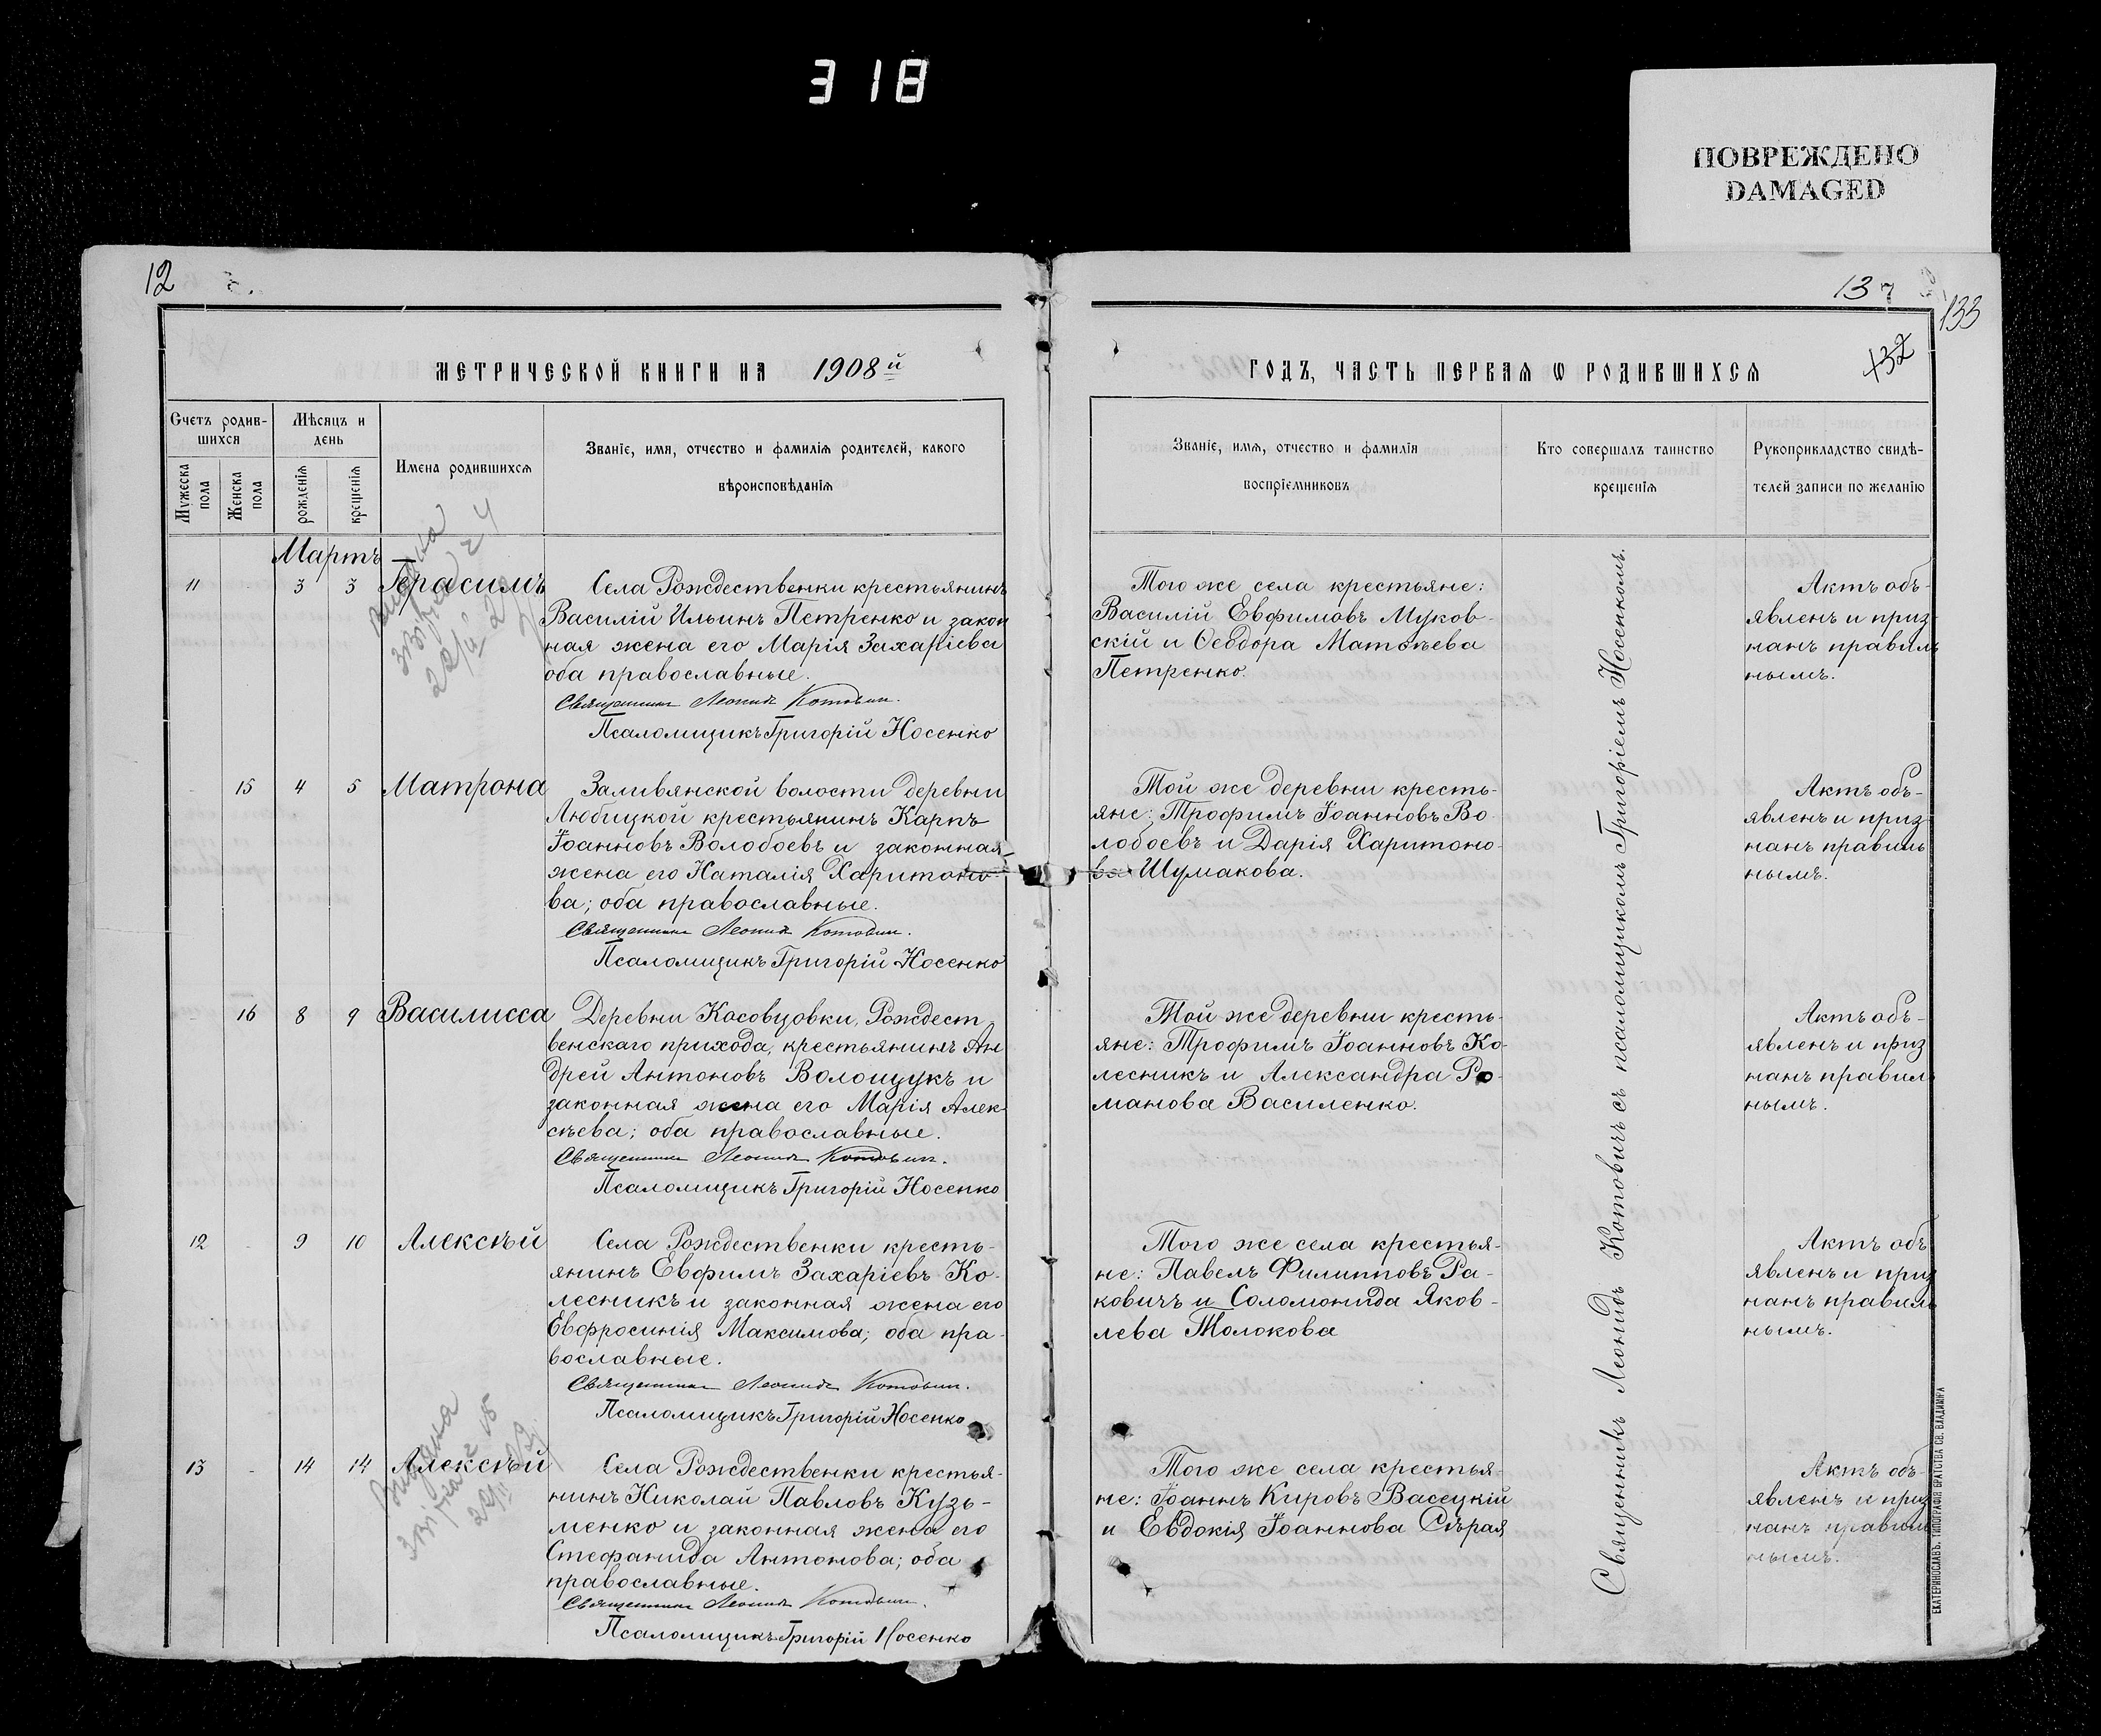 318
ПОВРЕЖДЕНО
DAMAGED
12
13
133
132
МЕТРИЧЕСКОЙ КНИГИ НА 1908й
ГОДЪ, ЧАСТЬ ПЕРВАЯ Ѡ РОДИВШИХСЯ
Счетъ родив-
шихся
Мужеска пола
Женска пола
Мѣсяцъ и
день
рожденія
крещенія
Имена родившихся
Званіе, имя, отчество и фамилія родителей, какого
вѣроисповѣданія
Званіе, имя, отчество и фамилія
воспріемниковъ
Кто совершалъ таинство
крещенія
Рукоприкладство свидѣ-
телей записи по желанію
Мартъ
11 3 3 Герасимъ
Села Рождественки крестьянинъ
Василій Ильинъ Петренко и закон
ная жена его Марія Захаріева
оба православные.
Священникъ Леонидъ Котович.
Псаломщикъ Григорій Носенко
Того же села крестьяне:
Василій Евфимовъ Муков-
скій и Ѳеодора Матѳѣева
Петренко.
Актъ объ-
явленъ и приз-
нанъ правиль
нымъ.
15 4 5 Матрона
Заливянской волости деревни
Любицкой крестьянинъ Карпъ
Іоанновъ Волобоевъ и законная
жена его Наталія Харитоно-
ва; оба православные.
Священникъ Леонидъ Котович.
Псаломщикъ Григорій Носенко
Той же деревни кресть-
яне: Трофимъ Іоанновъ Во
лобоевъ и Дарія Харитоно-
ва Шумакова.
Актъ объ-
явленъ и приз
нанъ правиль
нымъ.
16 8 9 Василисса
Деревни Косовцовки, Рождест-
венскаго прихода, крестьянинъ Ан
дрей Антоновъ Волощукъ и
законная жена его Марія Алек-
сѣева; оба православные.
Священникъ Леонидъ Котович.
Псаломщикъ Григорій Носенко
Той же деревни кресть-
яне: Трофимъ Іоанновъ Ко-
лесникъ и Александра Ро-
манова Василенко.
Актъ объ-
явленъ и приз
нанъ правиль
нымъ.
12 9 10 Алексѣй
Села Рождественки кресть-
янинъ Евфимъ Захаріевъ Ко-
лесникъ и законная жена его
Евфросинія Максимова; оба пра-
вославные.
Священникъ Леонидъ Котович.
Псаломщикъ Григорій Носенко
Того же села крестья-
не: Павелъ Филипповъ Ра-
ковичъ и Соломонида Яков-
лева Толокова
Актъ объ
явленъ и приз
нанъ правиль
нымъ.
13 14 14 Алексѣй
Села Рождественки крестья-
нинъ Николай Павловъ Кузь-
менко и законная жена его
Стефанида Антонова; оба
православные.
Священникъ Леонидъ Котович.
Псаломщикъ Григорій Носенко
Того же села крестья-
не: Іоаннъ Кировъ Васецкій
и Евдокія Іоаннова Сѣрая
Актъ объ-
явленъ и приз
нанъ правиль
нымъ.
Священникъ Леонидъ Котовичъ съ псаломщикомъ Григоріемъ Носенкомъ.
ЕКАТЕРИНОСЛАВЪ. ТИПОГРАФІЯ БРАТСТВА СВ. ВЛАДИМІРА